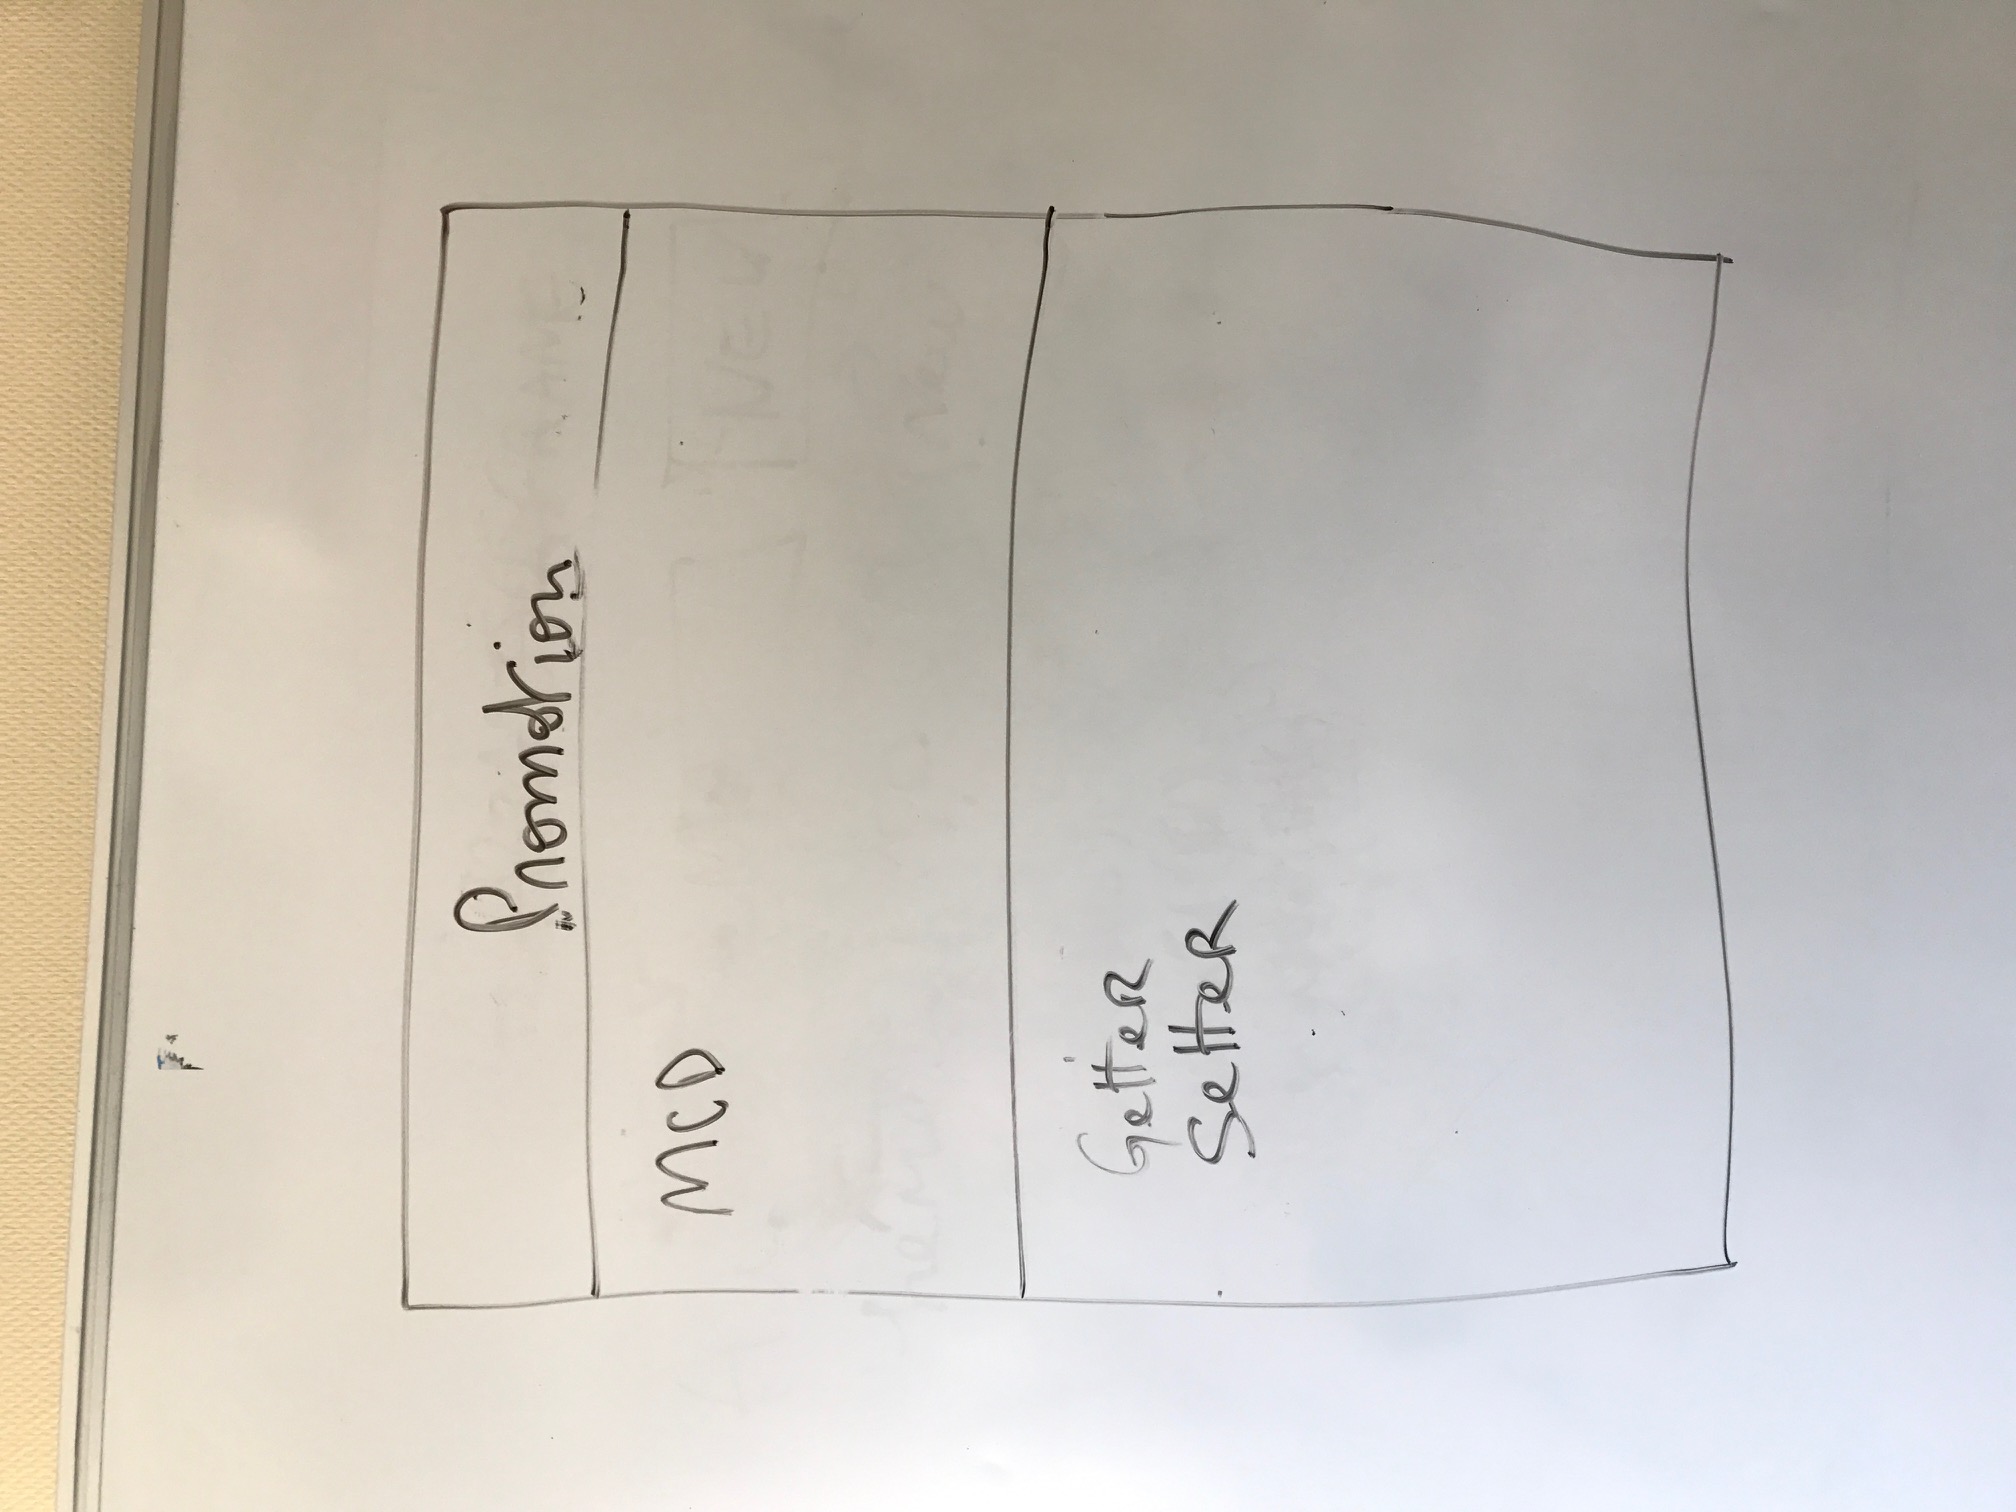 Promotion
MCD
Getter
Setter